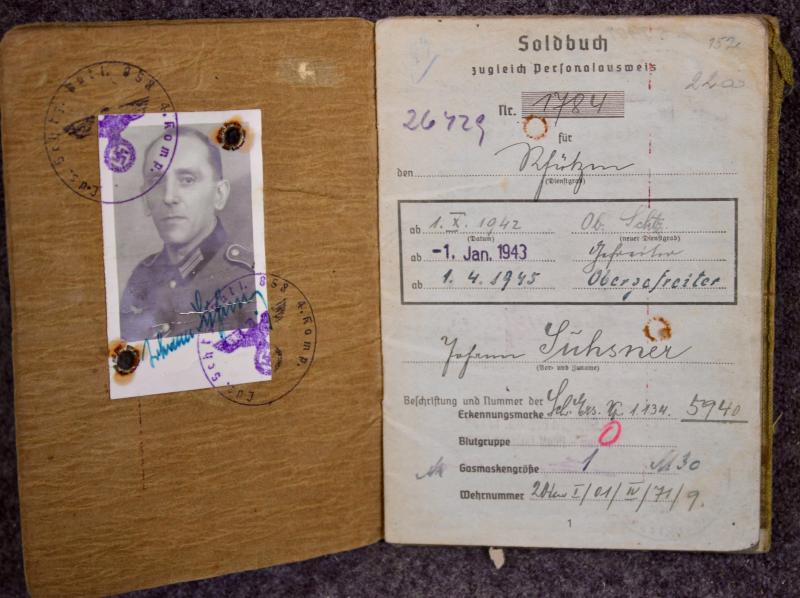 Soldbuch
zugleich Personalausweis
152
22a
26429
Nr. 1784
für
den Schützen
(Dienstgrad)
ab 1. X. 1942 Ob. Schtz.
(Datum) (neuer Dienstgrad)
ab -1. Jan. 1943 Gefreiter
ab 1. 4. 1945 Obergefreiter
Johann Sühsner
(Vor- und Zuname)
Beschriftung und Nummer der
Erkennungsmarke 1.134. 5940
Blutgruppe O
Gasmaskengröße 1 M30
Wehrnummer I/01/IV/71/9.
1
4. Komp.
4. Komp.